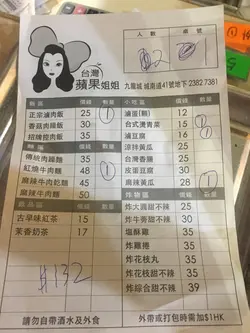 台灣
蘋果姐姐
人數 桌號
九龍城 城南道41號地下 2382 7381
飯區 價錢 數量
正宗滷肉飯 25 1
香菇肉燥飯 30
招牌控肉飯 35
小吃區 價錢 數量
滷蛋(顆) 12
台式燙青菜 15 1
滷豆腐 15
涼拌黃瓜 25
台灣香腸 25
皮蛋豆腐 30
麻辣黃瓜 28
價錢
傳統肉燥麵 35
紅燒牛肉麵 48 1
麻辣牛肉乾麵 45
麻辣牛肉麵 50
價錢
古早味紅茶 15
茉香奶茶 17
價錢
炸大圓甜不辣 35
炸牛蒡甜不辣 30
塩酥雞 35
炸雞捲 35
炸花枝丸 35
炸花枝甜不辣 35
炸綜合甜不辣 39
#132
請勿自帶酒水及外食
外帶或打包時需加$1HK